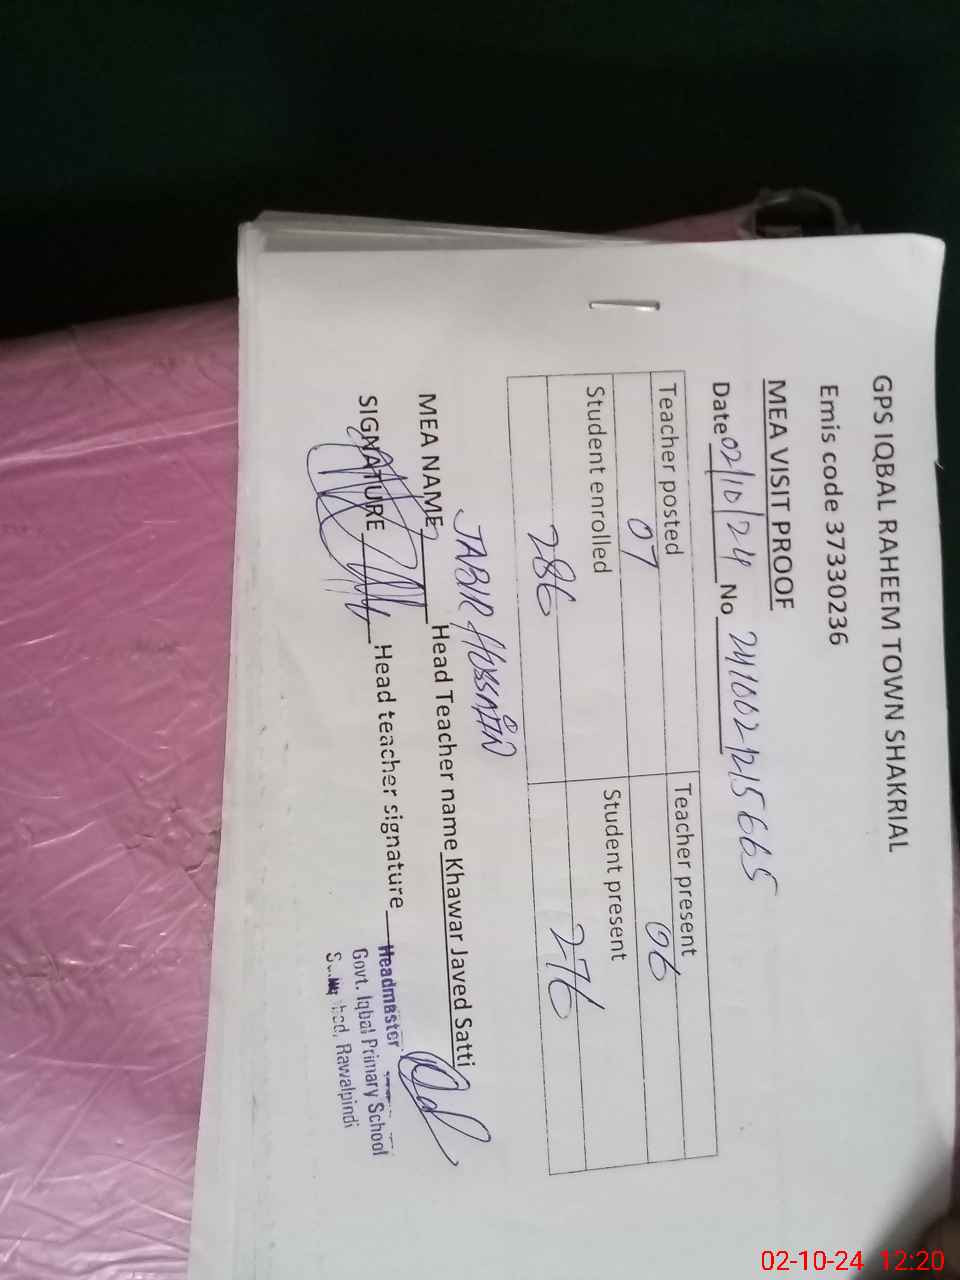 GPS IQBAL RAHEEM TOWN SHAKRIAL
Emis code 37330236
MEA VISIT PROOF
Date 02/10/24 No 2410021215665
Teacher posted Teacher present
07 06
Student enrolled Student present
286 276
JABIR HUSSAIN
MEA NAME Head Teacher name Khawar Javed Satti
SIGNATURE Head teacher signature
Headmaster
Govt. Iqbal Primary School
Rawalpindi
02-10-24 12:20